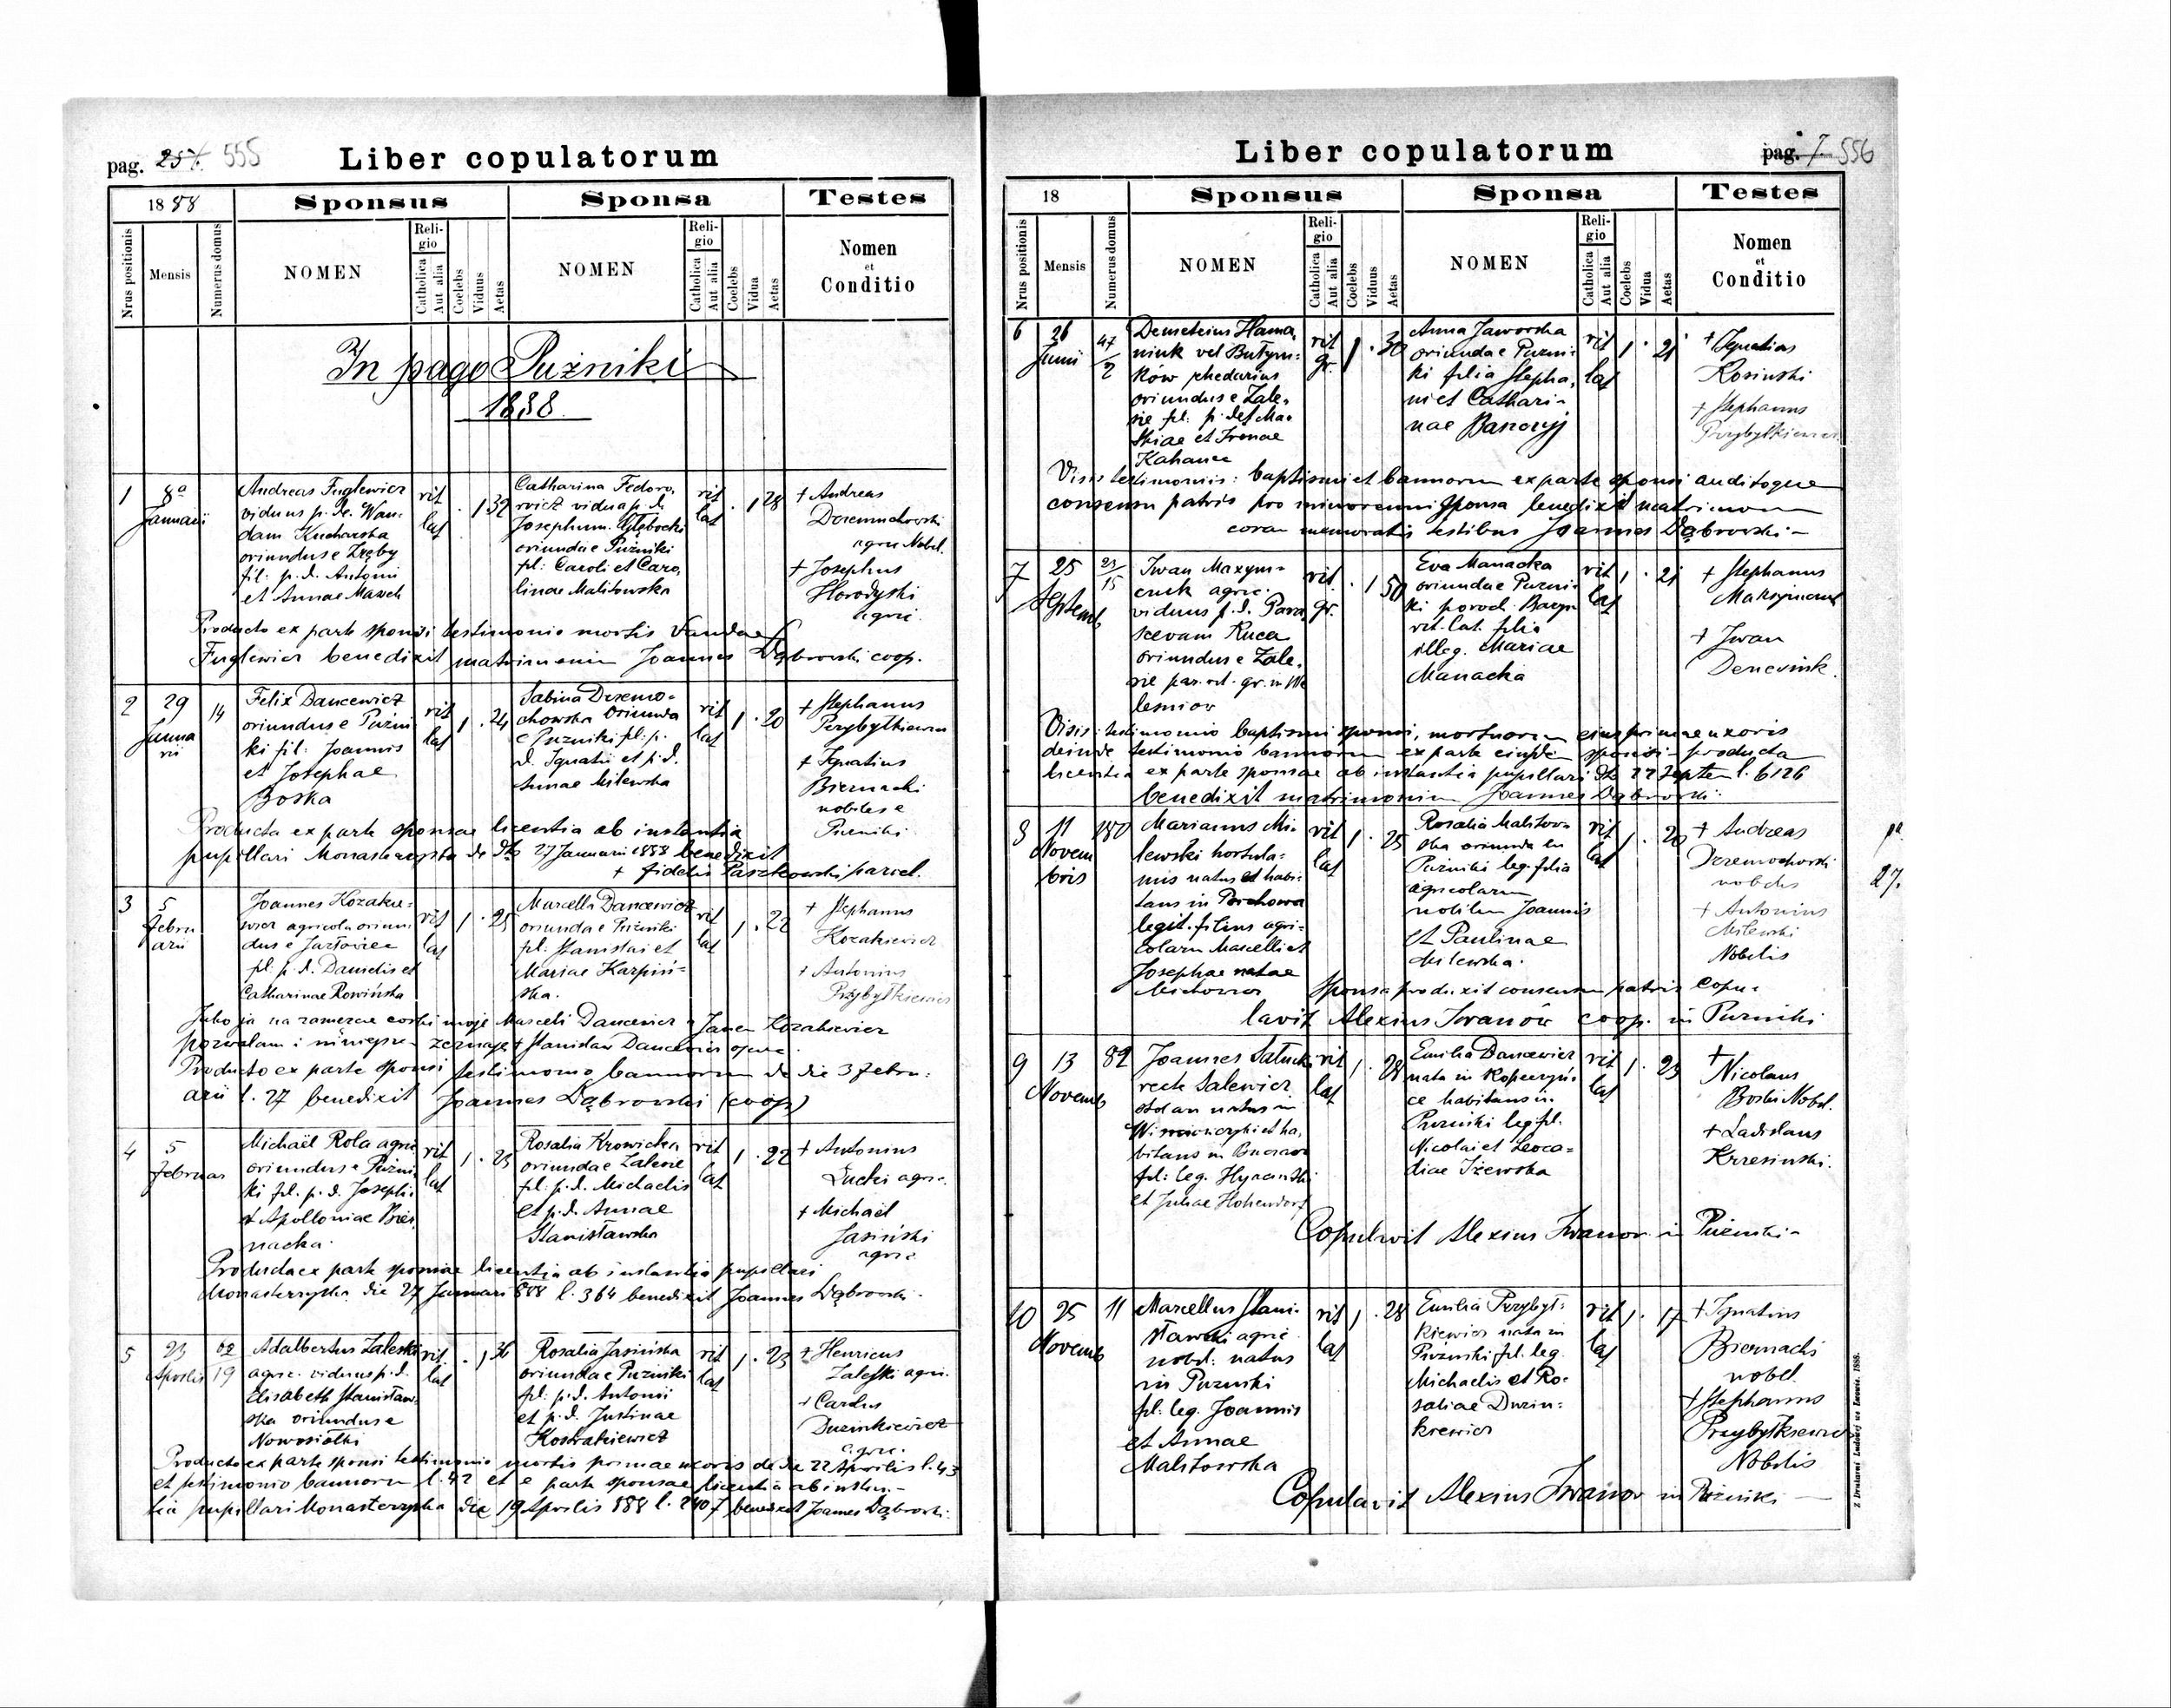 pag. 257. 555
Liber copulatorum
1888
Sponsus
Sponsa
Testes
Nrus positionis
Mensis
Numerus domus
NOMEN
Religio
Catholica
Aut alia
Coelebs
Viduus
Aetas
NOMEN
Religio
Catholica
Aut alia
Coelebs
Vidua
Aetas
Nomen
et
Conditio
In pago Puźniki
1888
1
8a
Januarii
Andreas Fuglewicz
viduus p. d. Wan-
dam Kucharska
oriundus e Zręby
fil: p. d. Antonii
et Annae
rit
lat
. 1 32
Catharina Fedoro-
wicz vidua p. d.
Josephum Głębocki
oriunda e Puźniki
fil: Caroli et Caro-
linae Malitowska
rit
lat
. 1 28
+ Andreas
Dzremuchowski
agric Nobil.
+ Josephus
Horodyski
agric.
Producto ex parte sponsi testimonio mortis Vandae
Fuglewicz benedixit matrimonium Joannes Dąbrowski coop.
2
29
Janua
rii
14
Felix Dancewicz
oriundus e Puźni
ki fil: Joannis
et Josephae
Boska
rit
lat
1 . 24
Sabina Drzemo-
chowska oriunda
e Puzniki fil: p.
d. Ignatii et p. d.
Annae Milewska
rit
lat
1 . 20
+ Stephanus
Przybyłkiewicz
+ Ignatius
Biernacki
nobiles e
Puzniki
Producta ex parte sponsae licentia ab instantia
pupillari Monasterzyska de dto 27 Januarii 1888 benedixit
+ fidelis Paszkowski paroch.
3
5
Febru
arii
Joannes Kozakie-
wicz agricola oriun
dus e Jazłowiec
fil. p. d. Danielis et
Catharinae Rowińska
rit
lat
1 . 25
Marcella Dancewicz
oriunda e Puźniki
fil: Stanislai et
Mariae Karpiń-
ska.
rit
lat
1 . 22
+ Stephanus
Kozakiewicz
+ Antonius
Przybyłkiewicz
Jako ja na zamęzcie corki moje Marceli Dancewicz z Janem Kozakiewicz
pozwalam i niniejsze zeznaję + Stanisław Dancewicz ojciec.
Producto ex parte sponsi testimonio bannorum de die 3 Febru-
arii l. 27 benedixit Joannes Dąbrowski (coop)
4
5
Februar
Michaël Rola agric
oriundus e Puźni
ki fil. p. d. Josephi
et Apolloniae Bier
nacka.
rit
lat
1 . 25
Rosalia Krowicka
oriunda e Zalesie
fil: p. d. Michaelis
et p. d. Annae
Stanisławska
rit
lat
1 . 22
+ Antonius
Łucki agric.
+ Michaël
Jasiński
agric
Producta ex parte sponsae licentia ab instantia pupillari
Monasterzyska die 27 Januari 888 l. 364 benedixit Joannes Dąbrowski.
5
23
Aprilis
62
19
Adalbertus Zaleski
agric. viduus p. d.
Elisabeth Stanisław-
ska oriundus e
Nowosiółki
rit
lat
. 1 36
Rosalia Jasińska
oriunda e Puźniki
fil. p. d. Antonii
et p. d. Justinae
Kostrakiewicz
rit
lat
1 . 23
+ Henricus
Zaleski agric.
+ Carolus
Duzinkiewicz
agric.
Producto ex parte sponsi testimonio mortis primae uxoris de die 22 Aprilis l. 43
et testimonio bannorum l. 42 et e parte sponsae licentia ab instan-
tia pupillari Monasterzyska die 19 Aprilis 888 l. 2407 benedixit Joannes Dąbrowski.
Liber copulatorum
pag. 7. 556
18
Sponsus
Sponsa
Testes
Nrus positionis
Mensis
Numerus domus
NOMEN
Religio
Catholica
Aut alia
Coelebs
Viduus
Aetas
NOMEN
Religio
Catholica
Aut alia
Coelebs
Vidua
Aetas
Nomen
et
Conditio
6
26
Junii
47
2
Demetrius Hama-
niuk vel Butym-
ków rhedarius
oriundus e Zale-
sie fil: p. def
et Irenae
Kahanec
rit
gr.
1 . 30
Anna Jaworska
oriunda e Puzni-
ki filia Stepha-
ni et Cathari-
nae
rit
lat
1 . 21
+ Ignatius
Rosinski
+ Stephanus
Przybyłkiewicz
Visis testimoniis: baptismi et bannorum ex parte sponsi auditoque
consensu patris pro minorenni sponsa benedixit matrimonium
coram memoratis testibus Joannes Dąbrowski
7
25
Septemb
23
15
Iwan Maxym-
czuk agric.
viduus p. d. Para-
scevam Kuca
oriundus e Zale-
sie par. rit. gr. in We
lesniow
rit.
gr.
. 1 50
Eva Manacka
oriunda e Puzni-
ki
rit. lat. filia
illeg. Mariae
Manacka
rit
lat
1 . 21
+ Stephanus
+ Iwan
Visis testimonio baptismi sponsi, mortuorum ejus primae uxoris
deinde testimonio bannorum ex parte ejusdem sponsi producta
licentia ex parte sponsae ab instantia pupillari dto 22 Septem l. 6126
benedixit matrimonium Joannes Dąbrowski.
8
11
Novem
bris
180
Marianus Mi-
lewski hortula-
nus natus et habi-
tans in Porchowa
legit. filius agri-
colarum Marcelli et
Josephae natae
rit
lat
1 . 25
Rosalia Malitow-
ska oriunda en
Puźniki leg. filia
agricolarum
nobilium Joannis
et Paulinae
Milewska.
rit
lat
1 . 20
+ Andreas
Drzemochowski
nobilis
+ Antonius
Milewski
Nobilis
27.
Sponsa produxit consensum patris Copu-
lavit Alexius Iwanów coop. in Puzniki
9
13
Novemb
82
Joannes
recte Salewicz
natus in
et ha-
bitans in
fil: leg.
et Juliae Hohendorf
rit
lat
1 . 28
Emilia Dancewicz
nata in Kopeczyń-
ce habitans in
Puzniki leg. fil.
Nicolai et Leoca-
diae Iżewska
rit
lat
1 . 23
+
Nicolaus
Boski Nobil.
+ Ladislaus
Krzesinski.
Copulavit Alexius Iwanow in Puźniki
10
25
Novemb
11
Marcellus Stani-
sławski agric
nobil: natus
in Puzniki
fil: leg. Joannis
et Annae
Malitowska
rit
lat
1 . 28
Emilia Przybył-
kiewicz nata in
Puźniki fil. leg.
Michaelis et Ro-
saliae Duzin-
kiewicz
rit
lat
1 . 17
+ Ignatius
Biernacki
nobil.
+ Stephanus
Przybyłkiewicz
Nobilis
Copulavit Alexius Iwanow in Puźniki
Z Drukarni Ludowej we Lwowie. 1888.